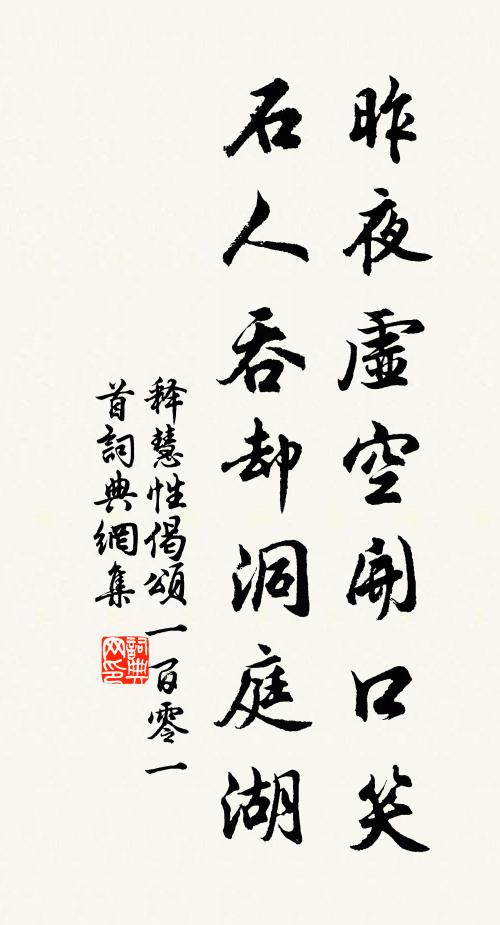 昨夜虛空開口笑
石人吞却洞庭湖
释慧性偈頌一百零一
首詞典網集
詞典
网印